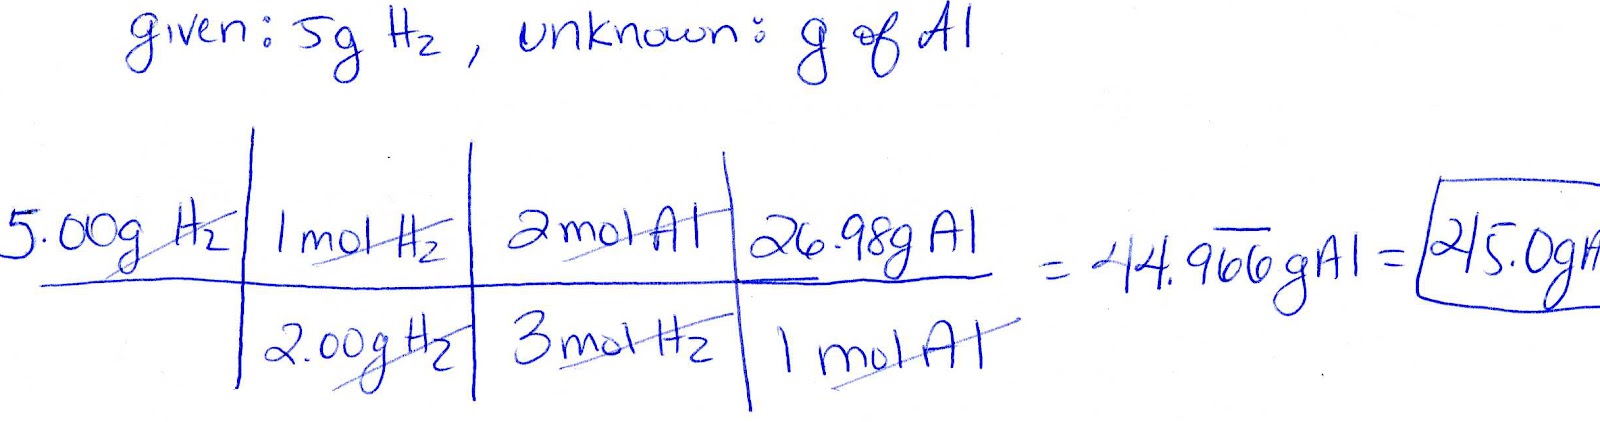 given: 5g H₂, unknown: g of Al
5.00g H₂ | 1 mol H₂ | 2 mol Al | 26.98g Al = 44.966̅6̅ g Al = 45.0g A
2.00g H₂ | 3 mol H₂ | 1 mol Al